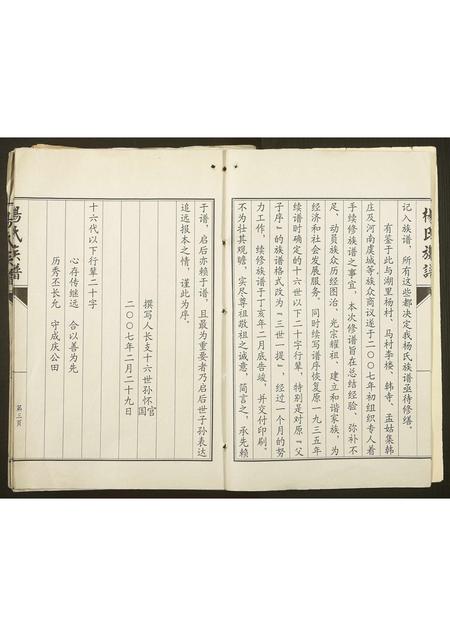 楊氏族譜
记入族谱，所有这些都决定我杨氏族谱亟待修缮。
有鉴于此与湖里杨村、马村李楼、韩寺、孟姑集韩
庄及河南虞城等族众商议遂于二00七年初组织专人着
手续修族谱之事宜，本次修谱旨在总结经验、弥补不
足、动员族众历经图治、光宗耀祖、建立和谐家族，为
经济和社会发展服务。同时续写谱序恢复原一九三五年
续谱时确定的十六世以下二十字行辈，特别是对原“父
子序”的族谱格式改为“三世一提”，经过一个月的努
力工作，续修族谱于丁亥年二月底告竣，并交付印刷。
不为壮其观瞻，实尽尊祖敬祖之诚意，简言之，承先赖
于谱，启后亦赖于谱，且最为重要者乃启后世子孙表达
追远报本之情，谨此为序。
撰写人长支十六世孙怀官
国
二00七年二月二十九日
十六代以下行辈二十字
心存传继远 合以善为先
历秀丕长允 守成庆公田
楊氏族譜
第三页